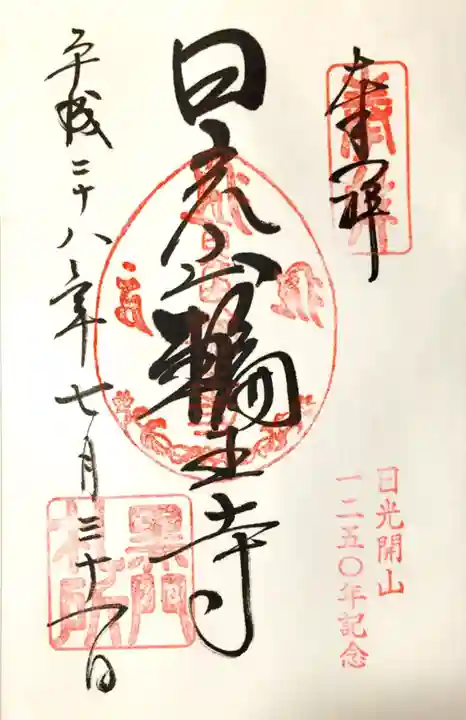 奉拝
日光開山
一二五〇年記念
日光山輪王寺
黒門
平成二十八年七月三十一日